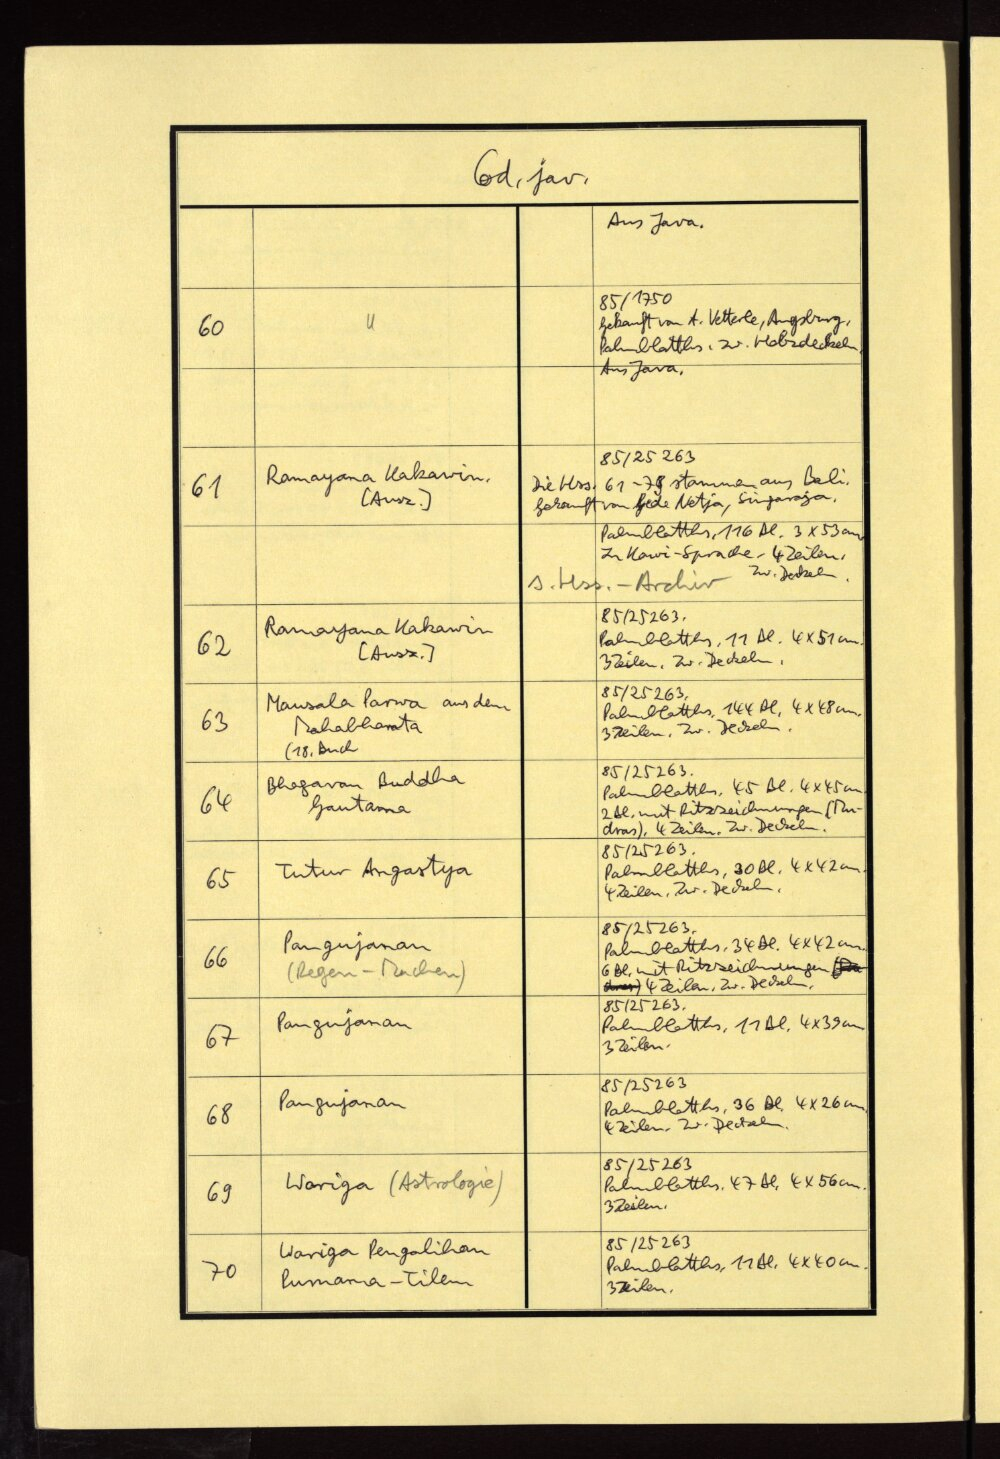 Cod. jav.
Aus Java.
60
"
85/1750
gekauft von A. Vetterle, Augsburg.
Palmblatths. zw. Holzdeckeln.
Aus Java.
61
Ramayana Kakawin.
[Ausz.]
85/25 263
Die Hss. 61-78 stammen aus Bali.
gekauft von Gede Netja, Singaraja.
Palmblatths, 116 Bl. 3 x 53 cm
In Kawi-Sprache - 4 Zeilen.
Zw. Deckeln.
s. Hss.-Archiv
62
Ramayana Kakawin
[Ausz.]
85/25263.
Palmblatths, 11 Bl. 4 x 51 cm.
3 Zeilen. Zw. Deckeln.
63
Mausala Parwa aus dem
Mahabharata
(18. Buch
85/25263.
Palmblatths, 144 Bl, 4 x 48 cm.
3 Zeilen, Zw. Deckeln.
64
Bhagavan Buddha
Gautama
85/25263.
Palmblatths. 45 Bl. 4 x 45 cm.
2 Bl. mit Ritzzeichnungen (Mu-
dras), 4 Zeilen. Zw. Deckeln.
65
Tutur Angastya
85/25263.
Palmblatths, 30 Bl. 4 x 42 cm.
4 Zeilen, Zw. Deckeln.
66
Pangujanan
(Regen-Machen)
85/25263.
Palmblatths. 34 Bl. 4 x 42 cm.
6 Bl. mit Ritzzeichnungen
4 Zeilen, Zw. Deckeln.
67
Pangujanan
85/25263.
Palmblatths, 11 Bl. 4 x 39 cm
3 Zeilen.
68
Pangujanan
85/25263
Palmblatths, 36 Bl. 4 x 26 cm.
4 Zeilen. Zw. Deckeln.
69
Wariga (Astrologie)
85/25263
Palmblatths. 47 Bl, 4 x 56 cm.
3 Zeilen.
70
Wariga Pengalihan
Purnama-Tilem
85/25263
Palmblatths, 11 Bl, 4 x 40 cm.
3 Zeilen.